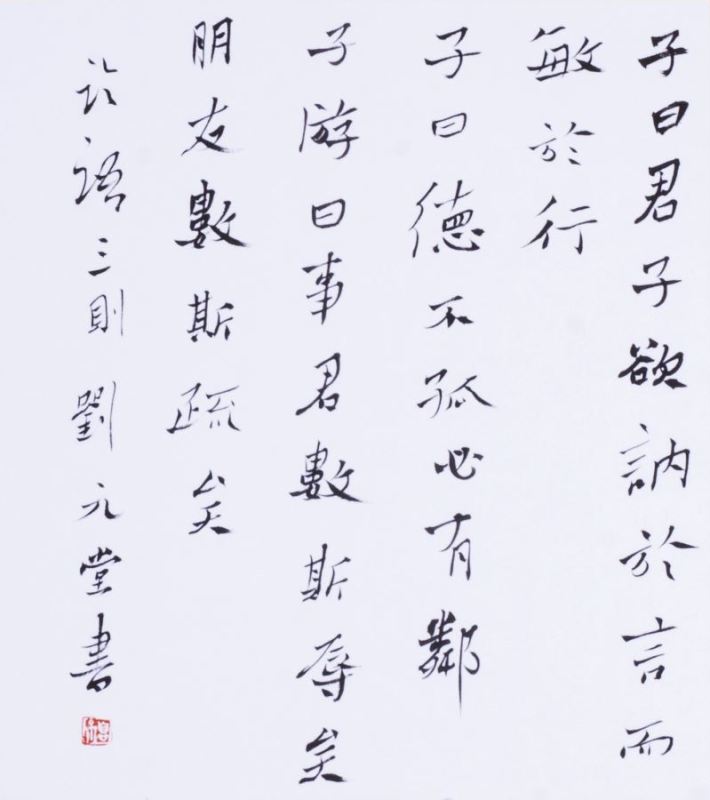 子曰君子欲訥於言而
敏於行
子曰德不孤必有鄰
子游曰事君數斯辱矣
朋友數斯疏矣
論語三則 劉元堂書